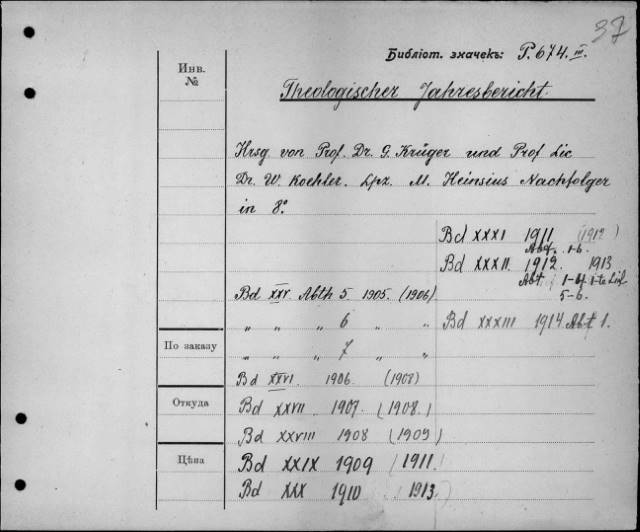 37
Библіот. значекъ: P.674.III.
Инв.
№
Theologischer Jahresbericht.
Hrsg. von Prof. Dr. G. Krüger und Prof Lic
Dr. W. Koehler. Lpz. M. Heinsius Nachfolger
in 8º
Bd XXV. Abth 5. 1905. (1906)
" " " 6 " "
" " " 7 " "
Bd XXVI. 1906. (1908)
Bd XXVII. 1907. (1908.)
Bd XXVIII 1908 (1909)
Bd XXIX 1909 (1911.
Bd XXX 1910 1913.)
Bd XXXI 1911 (1912)
Abt. 1-6.
Bd XXXII. 1912. 1913
Abt. 1-4
5-6.
Bd XXXIII 1914. Abt 1.
По заказу
Откуда
Цѣна